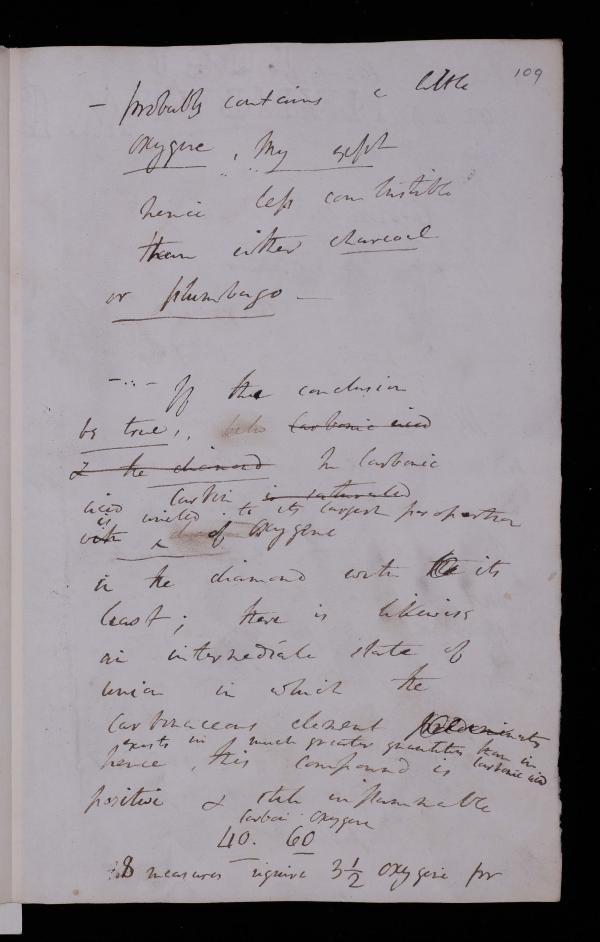 109
– probably contains a little
oxygene,
hence less combustible
than either charcoal
or plumbago –
If the conclusion
be true, carbonic acid
& the diamond In Carbonic
acid carbon is saturated
is united to its largest proportion
with of oxygene
in the diamond with the its
least; there is likewise
an intermediate state of
union in which the
carbonaceous element predominates
exists in much greater quantities than in
carbonic acid
hence this compound is
positive & still inflammable
Carbon Oxygene
40. 60
8 measures require 3 1/2 oxygene for